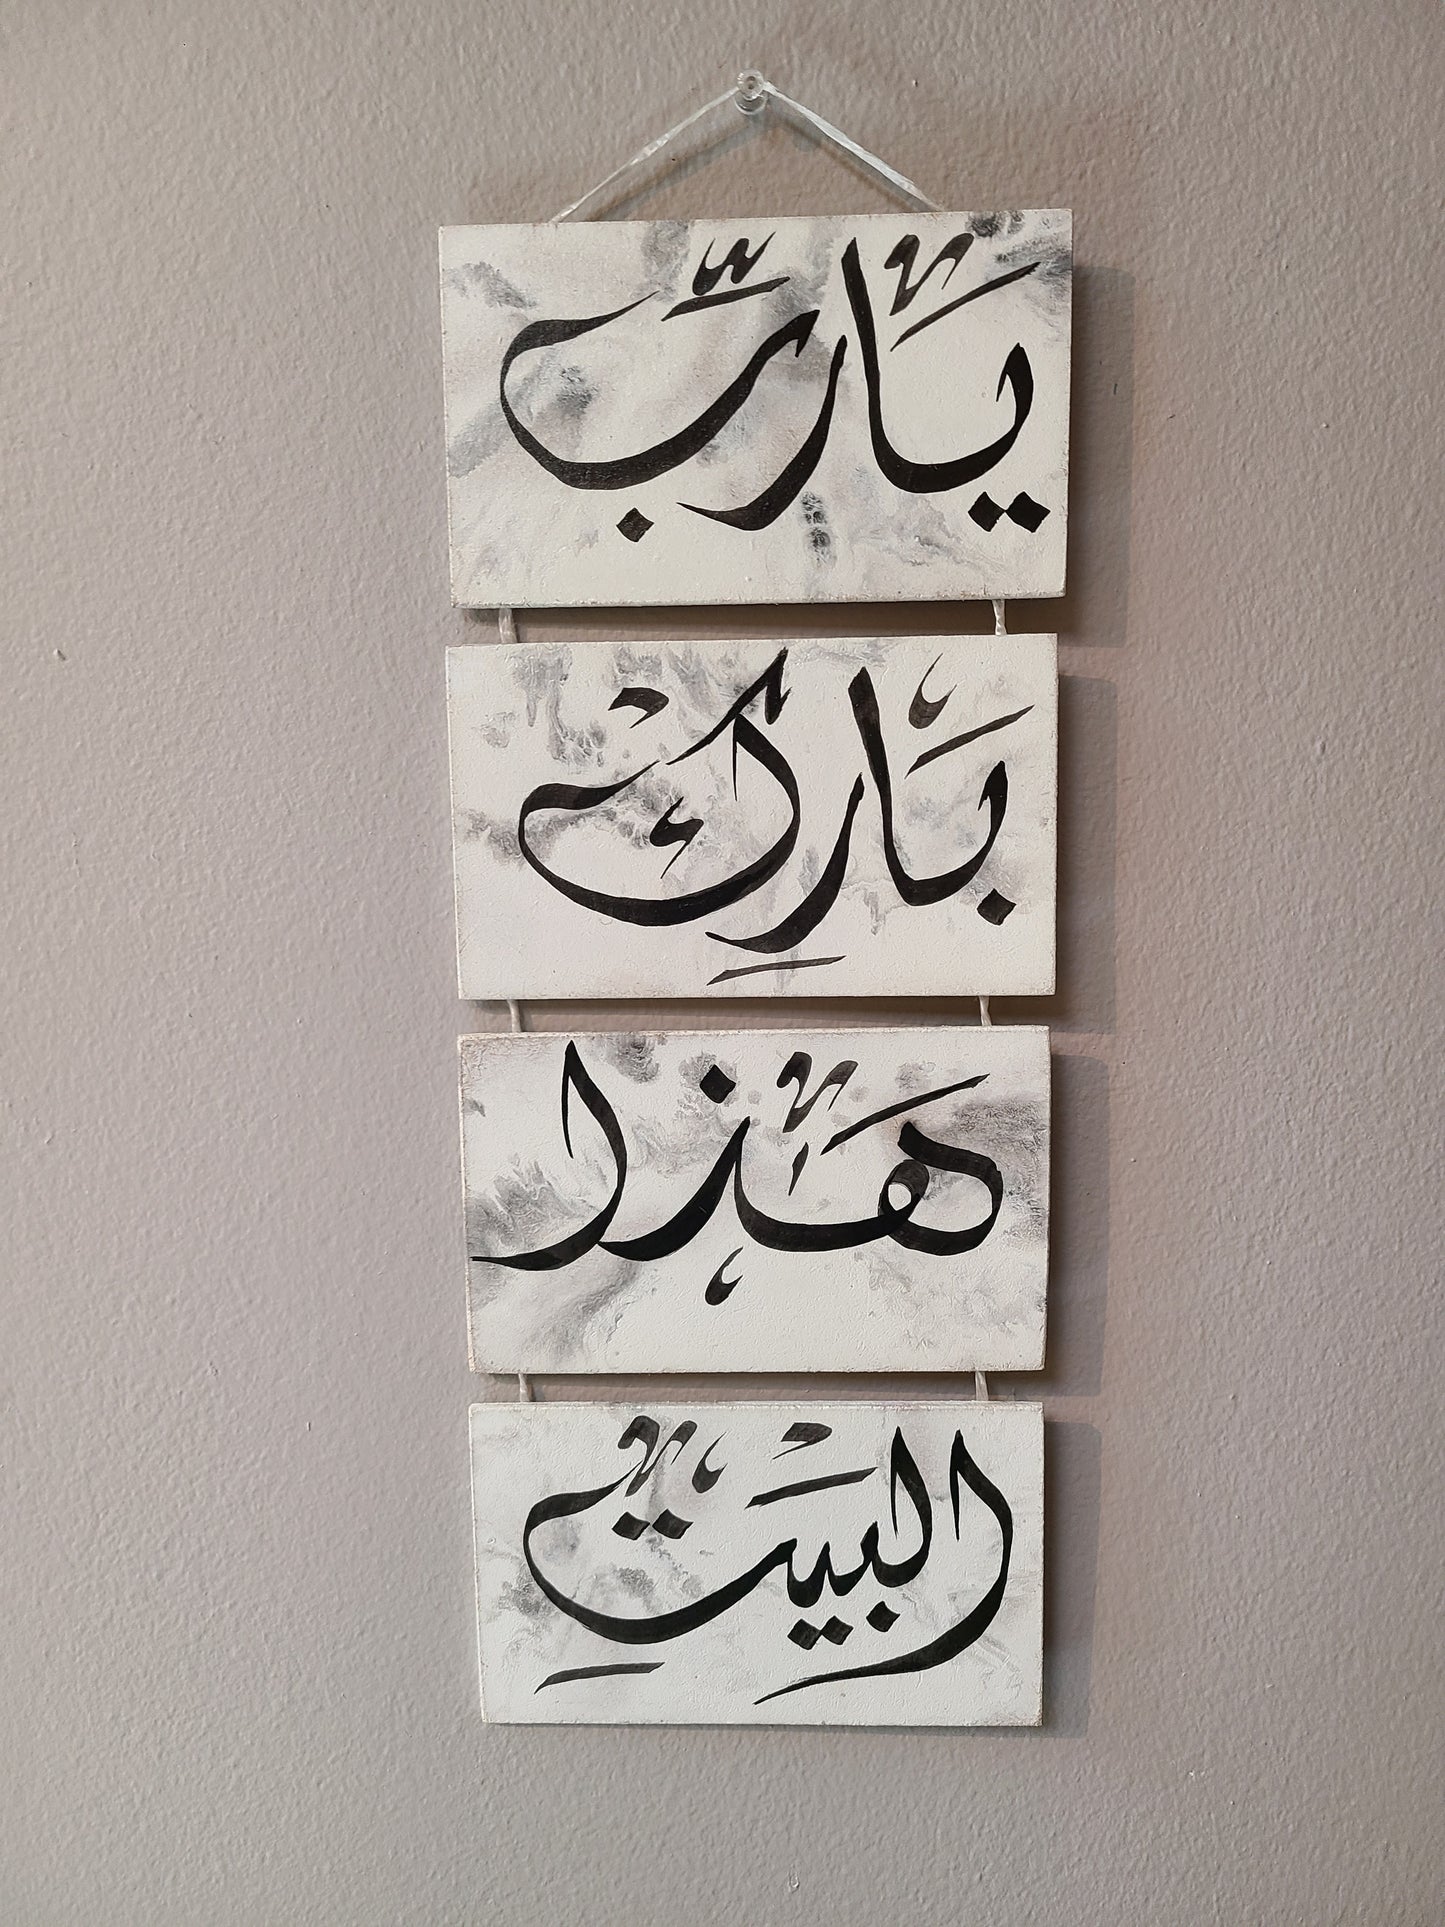 يَا رَبّ
بَارِكْ
هَذا
البَيْتِ